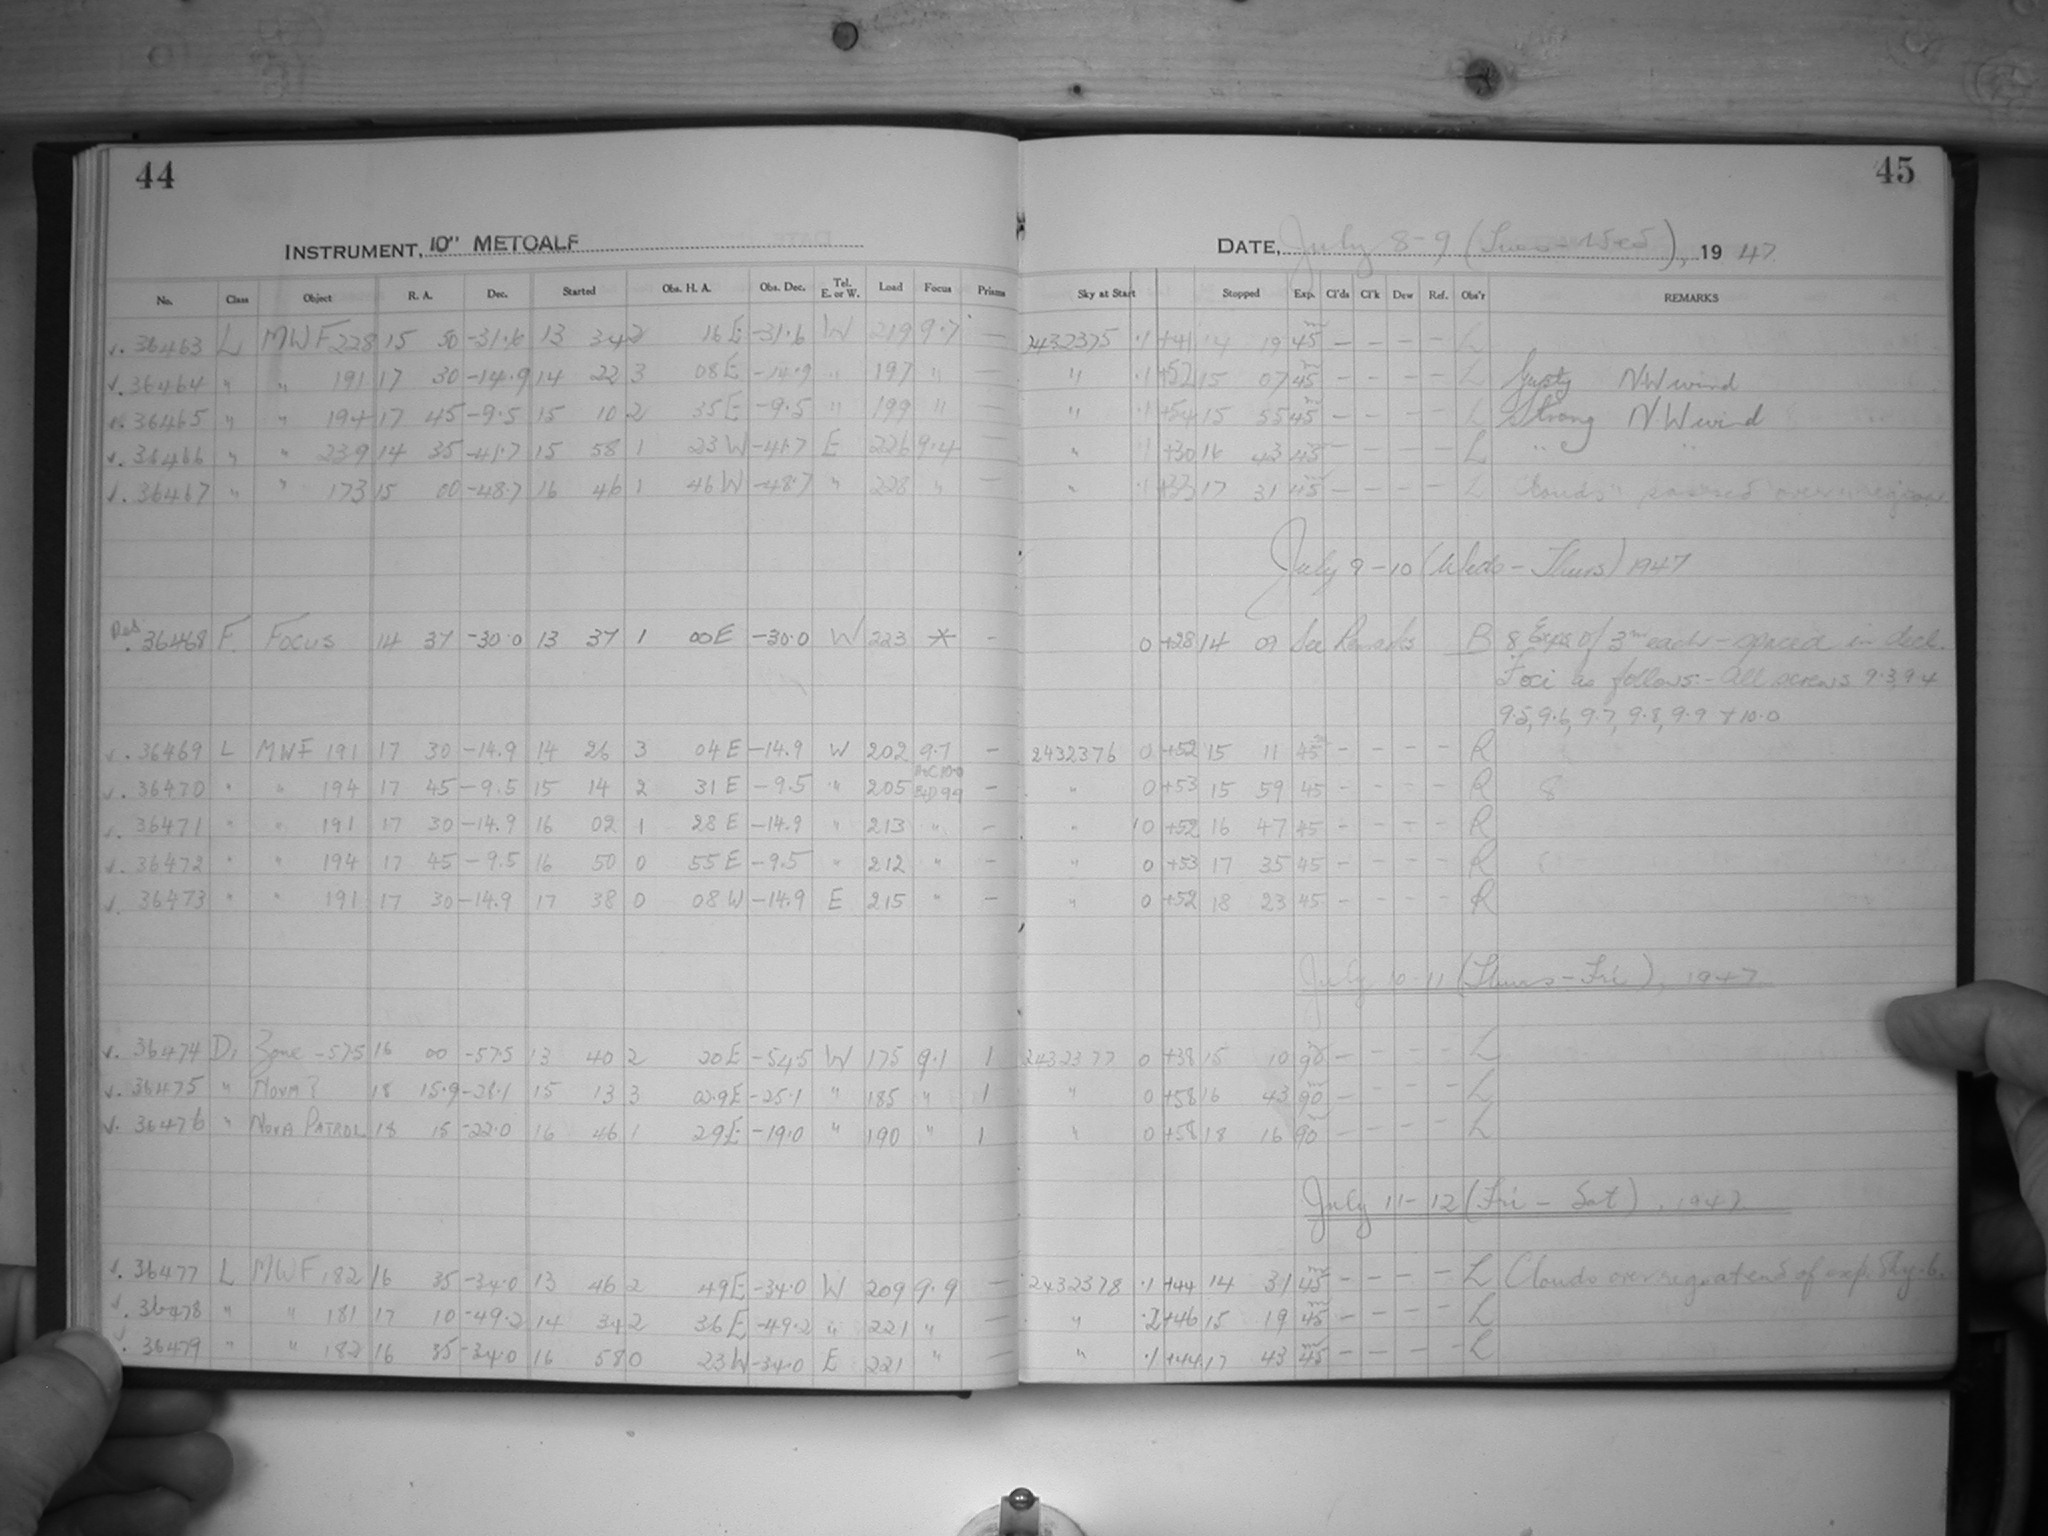 44
INSTRUMENT, 10" METCALF
No. Class Object R. A. Dec. Started Obs. H. A. Obs. Dec. Tel. E. or W. Load Focus Prisms
45
DATE, July 8-9 (Tues-Wed), 1947
Sky at Start Stopped Exp. Cl'ds Cl'k Dew Ref. Obs'r REMARKS
v. 36463 L MWF 228 15 50 -31.6 13 34 2 16 E -31.6 W 219 9.7 — 2432375 .1 +41 14 19 45 — — — — L
v. 36464 " " 191 17 30 -14.9 14 22 3 08 E -14.9 " 197 " — " .1 +52 15 07 45 — — — — L Gusty N.W wind
v. 36465 " " 194 17 45 -9.5 15 10 2 35 E -9.5 " 199 " — " .1 +54 15 55 45 — — — — L Strong N.W wind
v. 36466 " " 239 14 35 -41.7 15 58 1 23 W -41.7 E 226 9.4 — " .1 +30 16 43 45 — — — — L " "
v. 36467 " " 173 15 00 -48.7 16 46 1 46 W -48.7 " 228 " — " .1 +33 17 31 45 — — — — L Clouds passed over region
July 9-10 (Weds-Thurs) 1947
36468 F. Focus 14 37 -30.0 13 37 1 00 E -30.0 W 223 * — 0 +28 14 09 See Remarks B 8 Exps of 3m each - spaced in decl.
Foci as follows:- All screws 9.3, 9.4
9.5, 9.6, 9.7, 9.8, 9.9 + 10.0
v. 36469 L MWF 191 17 30 -14.9 14 26 3 04 E -14.9 W 202 9.7 — 2432376 0 +52 15 11 45 — — — — R
v. 36470 " " 194 17 45 -9.5 15 14 2 31 E -9.5 " 205 A+C 10.0 B+D 9.9 — " 0 +53 15 59 45 — — — — R
v. 36471 " " 191 17 30 -14.9 16 02 1 28 E -14.9 " 213 " — " 0 +52 16 47 45 — — — — R
v. 36472 " " 194 17 45 -9.5 16 50 0 55 E -9.5 " 212 " — " 0 +53 17 35 45 — — — — R
v. 36473 " " 191 17 30 -14.9 17 38 0 08 W -14.9 E 215 " — " 0 +52 18 23 45 — — — — R
July 10-11 (Thurs-Fri), 1947
v. 36474 D, Zone -57.5 16 00 -57.5 13 40 2 20 E -54.5 W 175 9.1 1 2432377 0 +38 15 10 90 — — — — L
v. 36475 " Nova? 18 15.9 -28.1 15 13 3 02.9 E -25.1 " 185 " 1 " 0 +58 16 43 90 — — — — L
v. 36476 " NOVA PATROL 18 15 -22.0 16 46 1 29 E -19.0 " 190 " 1 " 0 +58 18 16 90 — — — — L
July 11-12 (Fri - Sat), 1947
v. 36477 L MWF 182 16 35 -34.0 13 46 2 49 E -34.0 W 209 9.9 — 2432378 .1 +44 14 31 45 — — — — L Clouds over reg. at end of exp. Sky .6.
v. 36478 " " 181 17 10 -49.2 14 34 2 36 E -49.2 " 221 " — " .2 +46 15 19 45 — — — — L
v. 36479 " " 182 16 35 -34.0 16 58 0 23 W -34.0 E 221 " — " .1 +44 17 43 45 — — — — L